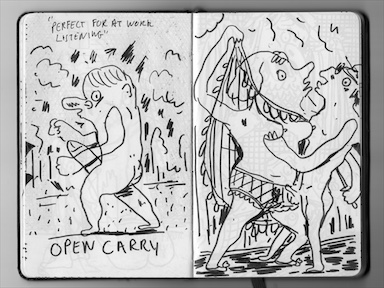 "PERFECT FOR AT WORK
LISTENING"
OPEN CARRY